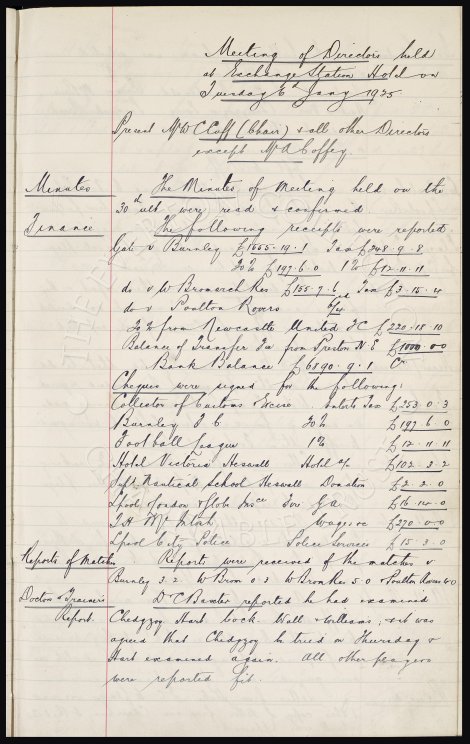 Meeting of Directors held
at Exchange Station Hotel on
Tuesday 6th Jany 1925
Present Mr W C Cuff (Chair) & all other Directors
except Mr A Coffey.
Minutes
The Minutes of Meeting held on the
30th ult were read & confirmed.
Finance
The following receipts were reported
Gate v Burnley £1655.19.1 Tax £248.9.8
20% £197.6.0 1% £12.11.11
do v W Bromwich Res £155.7.6 Tax £3.15.4
do v Poulton Rovers 6/4d
20% from Newcastle United FC £220.18.10
Balance of Transfer from Preston N E £1000.0.0
Bank Balance £6890.9.1 Cr
Cheques were signed for the following:
Collector of Customs Excise Enterts Tax £253.0.3
Burnley F C 20% £197.6.0
Football League 1% £12.11.11
Hotel Victoria Heswall Hotel a/c £102.3.2
Nautical School Heswall Donation £2.2.0
Lpool London & Globe Insce £16.14.0
Wages £270.0.0
Lpool City Police Police Services £15.3.0
Reports of Matches
Reports were received of the matches v
Burnley 3 2 W Brom 0 3 W Brom Res 5 0 Poulton Rovers 6 0
Doctor & Trainers
Report.
Dr C Baxter reported he had examined
Chedgzoy Hart Cock Wall & Williams, & it was
agreed that Chedgzoy be tried on Thursday &
Hart examined again. All other players
were reported fit.